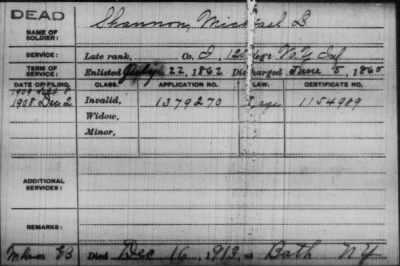 DEAD
NAME OF SOLDIER: Shannon, Michael B
SERVICE: Late rank, Co. I, 12 Reg't N.Y. Inf
TERM OF SERVICE: Enlisted July 22, 1862 Discharged June 5, 1865
DATE OF FILING. CLASS. APPLICATION NO. LAW. CERTIFICATE NO.
1908 Dec 2 Invalid, 1379270 1154989
Widow,
Minor,
ADDITIONAL SERVICES:
REMARKS:
Died Dec 16, 1913, at Bath NY